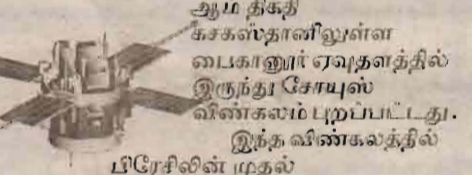 ஆம் திகதி
கசகஸ்தானிலுள்ள
பைகானூர் ஏவுதளத்தில்
இருந்து சோயுஸ்
விண்கலம் புறப்பட்டது.
இந்த விண்கலத்தில்
பிரேசிலின் முதல்